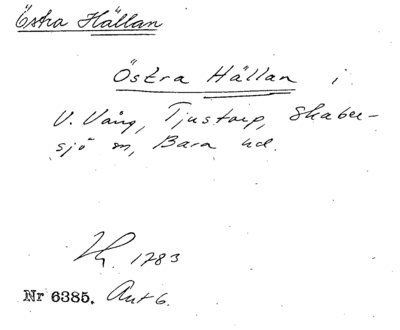 Östra Hällan
Östra Hällan i
V. Vång, Tjustorp, Skaber-
sjö sn, Bara hd.
1783
Nr 6385. Akt 6.